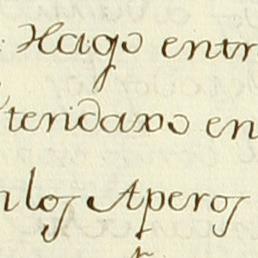 Hago entr
tendaxo en
los Aperos